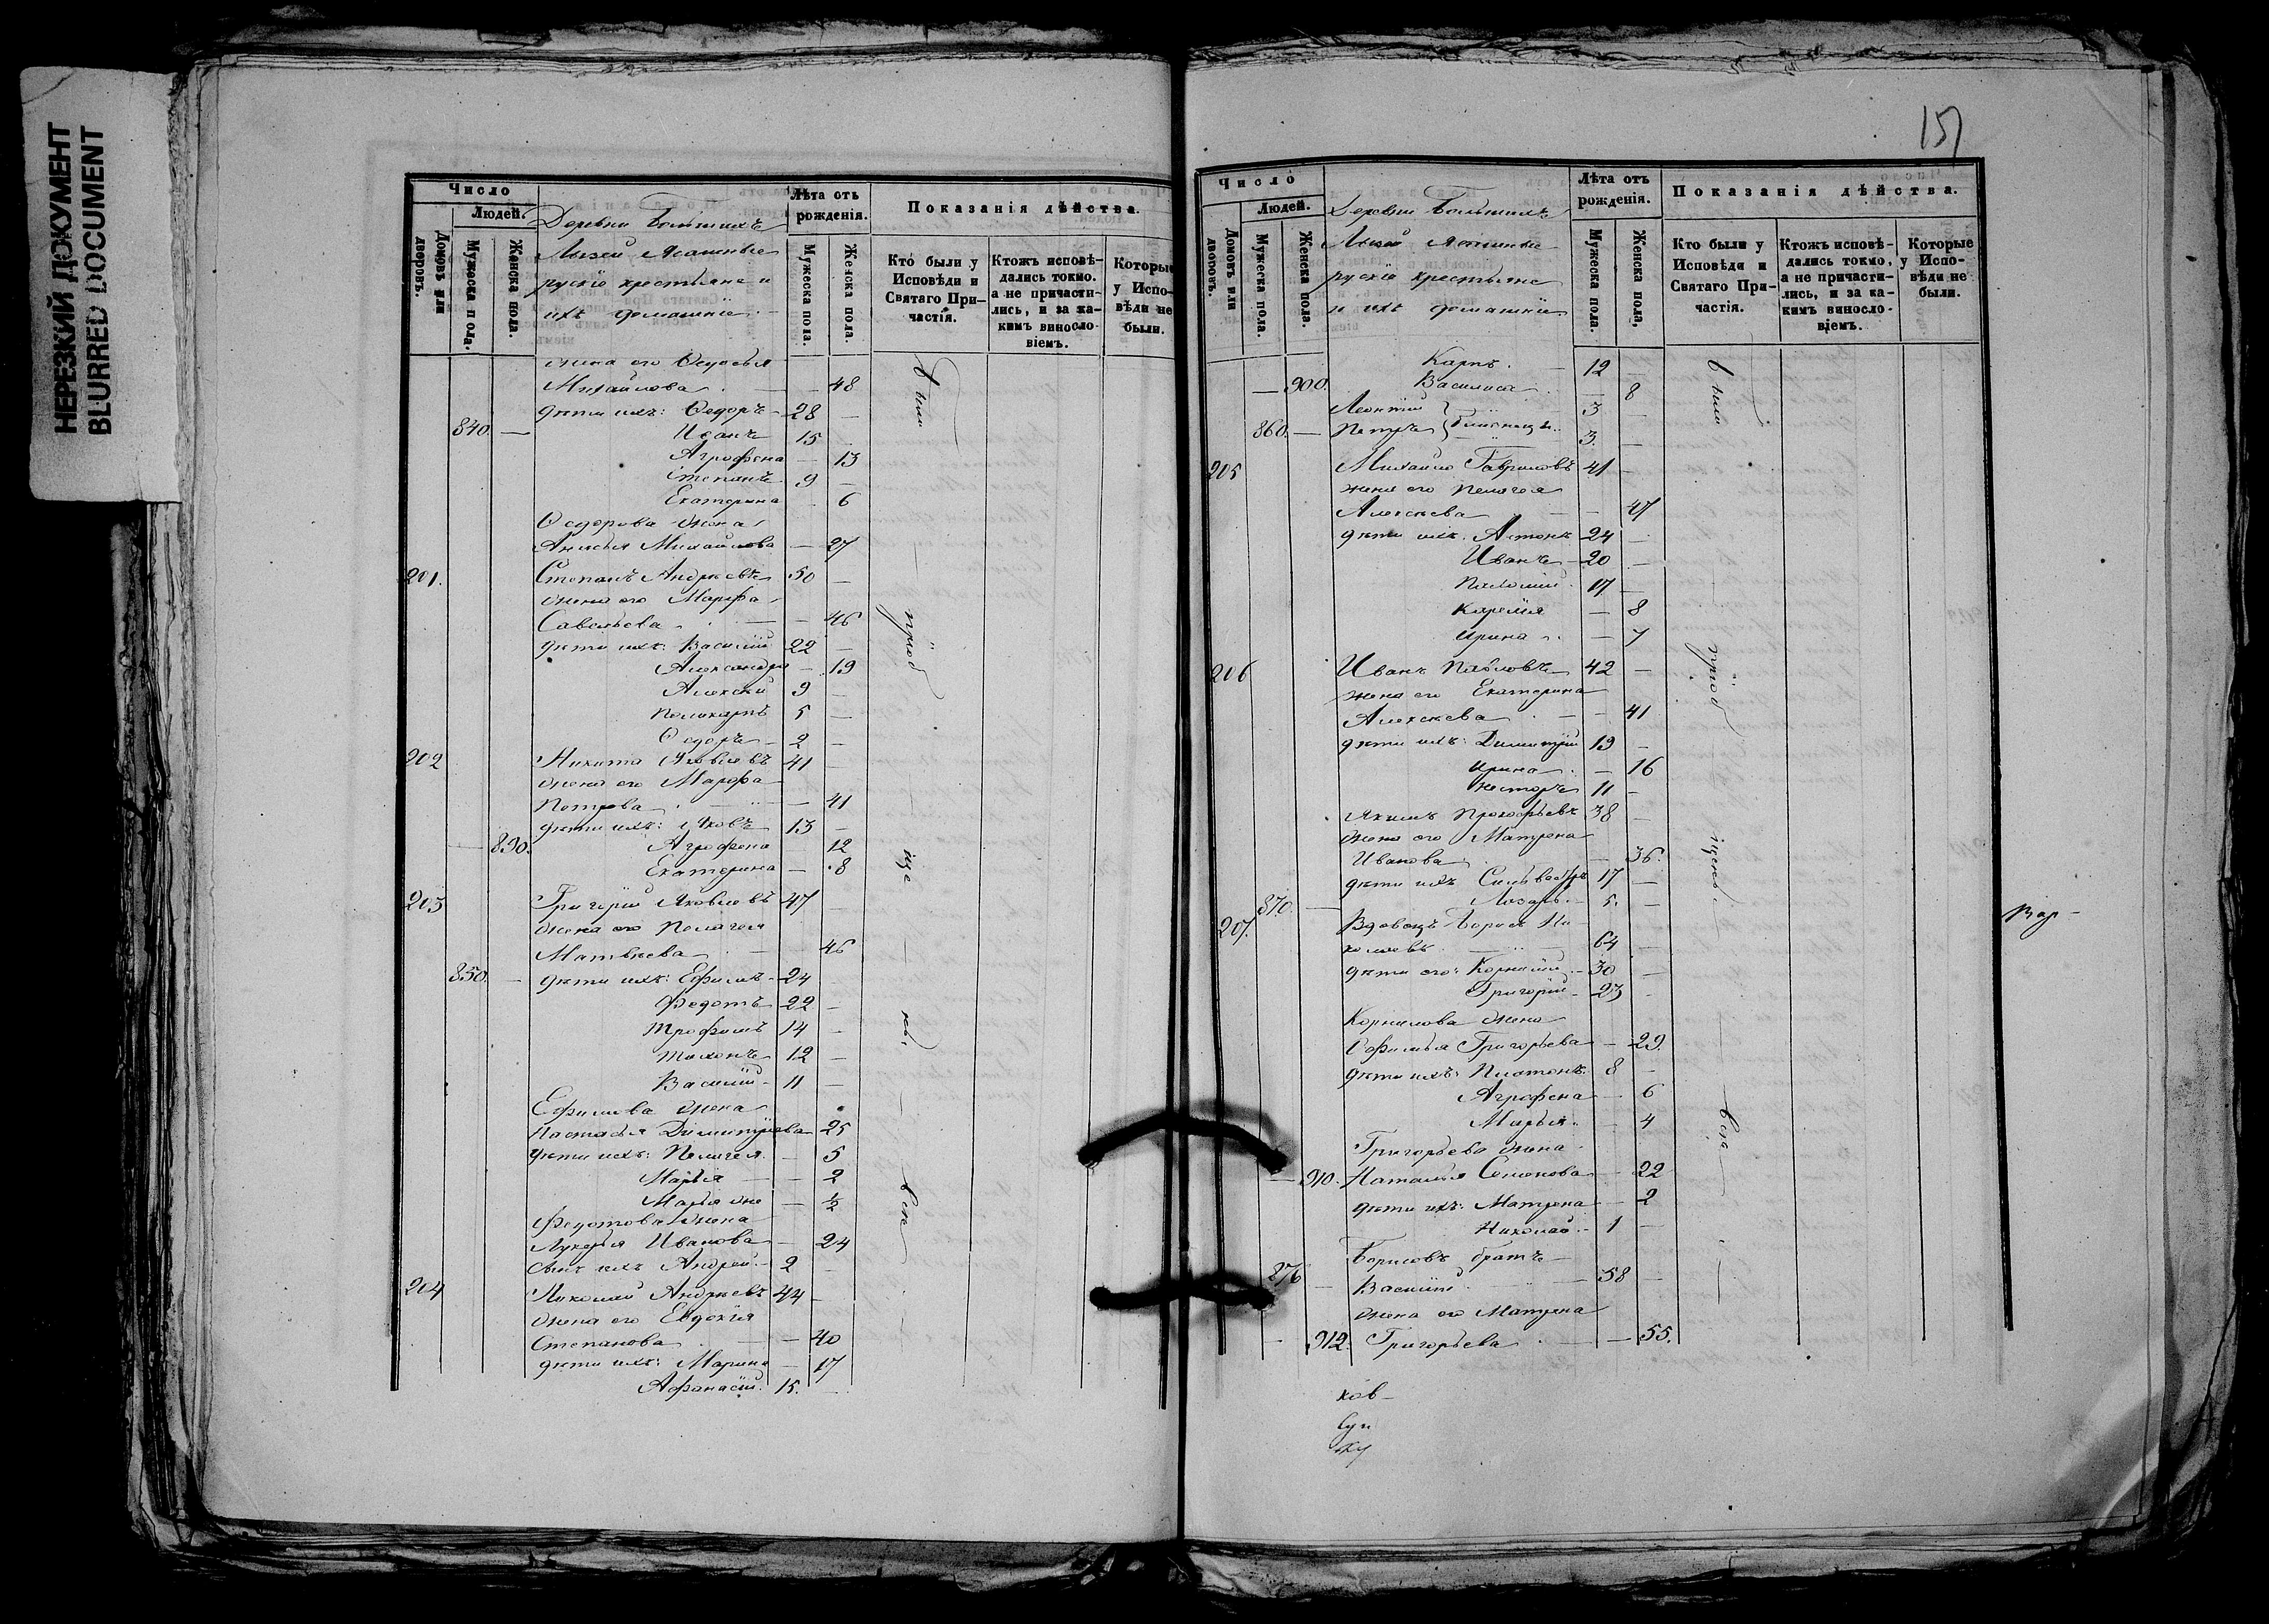 НЕРЕЗКИЙ ДОКУМЕНТ
BLURRED DOCUMENT
Число
Людей.
Домовъ или дворовъ.
Мужеска пола.
Женска пола.
Деревни Большихъ
Лызей Ясашные
рускіе крестьяне и
ихъ домашніе
Лѣта отъ рожденія.
Мужеска пола.
Женска пола.
Показанія дѣйства.
Кто были у Исповѣди и Святаго При-
частія.
Ктожъ исповѣ-
дались токмо,
а не причасти-
лись, и за ка-
кимъ винosло-
віемъ.
Которые
у Испо-
вѣди не
были.
жена его Ѳедосья
Михайлова 48
дѣти ихъ: Ѳедоръ 28
840. Иванъ 15
Агрофена 13
Степанъ 9
Екатерина 6
Ѳедорова жена
Анисья Михайлова 27
201. Степанъ Андреевъ 50
жена его Марфа
Савельева 46
дѣти ихъ: Василій 22
Александра 19
Алексѣй 9
Поликарпъ 5
Ѳедоръ 2
202 Никита Яковлевъ 41
жена его Марфа
Петрова 41
дѣти ихъ: Яковъ 13
890. Агрофена 12
Екатерина 8
203 Григорій Яковлевъ 47
жена его Пелагея
Матвѣева 46
850. дѣти ихъ: Ефимъ 24
Федотъ 22
Трофимъ 14
Тихонъ 12
Василій 11
Ефимова жена
Настасья Димитріева 25
дѣти ихъ: Пелагея 5
Марья 2
Марья же ½
Федотова жена
Лукерья Иванова 24
сынъ ихъ Андрей 2
204 Николай Андреевъ 44
жена его Евдокія
Степанова 40
дѣти ихъ: Марина 17
Афанасій 15.
были
пріоб
ще
ны
все
157
Число
Людей.
Домовъ или дворовъ.
Мужеска пола.
Женска пола.
Деревни Большихъ
Лызей Ясашные
рускіе крестьяне
и ихъ домашніе
Лѣта отъ рожденія.
Мужеска пола.
Женска пола,
Показанія дѣйства.
Кто были у
Исповѣди и
Святаго При-
частія.
Ктожъ исповѣ-
дались токмо,
а не причасти-
лись, и за ка-
кимъ винosло-
віемъ.
Которые
у Испо-
вѣди не
были.
Карпъ 12
900. Василиса 8
Леонтій 3
860. Петръ близнецы 3.
205 Михайло Гавриловъ 41
жена его Пелагея
Алексѣева 47
дѣти ихъ: Антонъ 24
Иванъ 20
17
8
Ирина 7
206 Иванъ Павловъ 42
жена его Екатерина
Алексѣева 41
дѣти ихъ: Димитрій 19
Ирина 16
Несторъ 11
Якимъ Прокофьевъ 38
жена его Матрена
Иванова 36.
дѣти ихъ Сильвестръ 17
870. Лазарь 5.
207. Вдовецъ Борисъ Ни-
колаевъ 64
дѣти его: Корнилій 30
Григорій 23
Корнилова жена
Софилья Григорьева 29.
дѣти ихъ: Платонъ 8
Агрофена 6
Марья 4
Григорьева жена
910. Наталья Семенова 22
дѣти ихъ: Матрена 2
Николай 1
Борисовъ братъ
876 Василій 58
жена его Матрена
912. Григорьева 55.
были
пріоб
щены
все
ков-